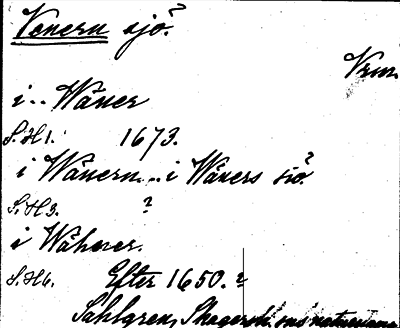 Venern sjö?
Vrm.
i .. Wäner
S.H1. 1673.
i Wänern ... i Wäners siö?
S.H3. ?
i Wähner.
S.H6. Efter 1650. ?
Sahlgren, Skagersh. sns